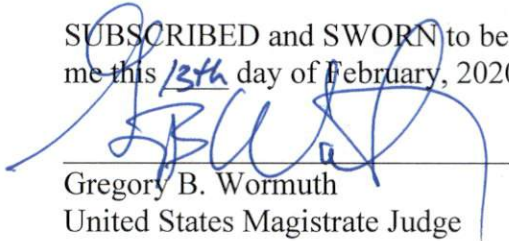 SUBSCRIBED and SWORN to be
me this 13th day of February, 202
Gregory B. Wormuth
United States Magistrate Judge